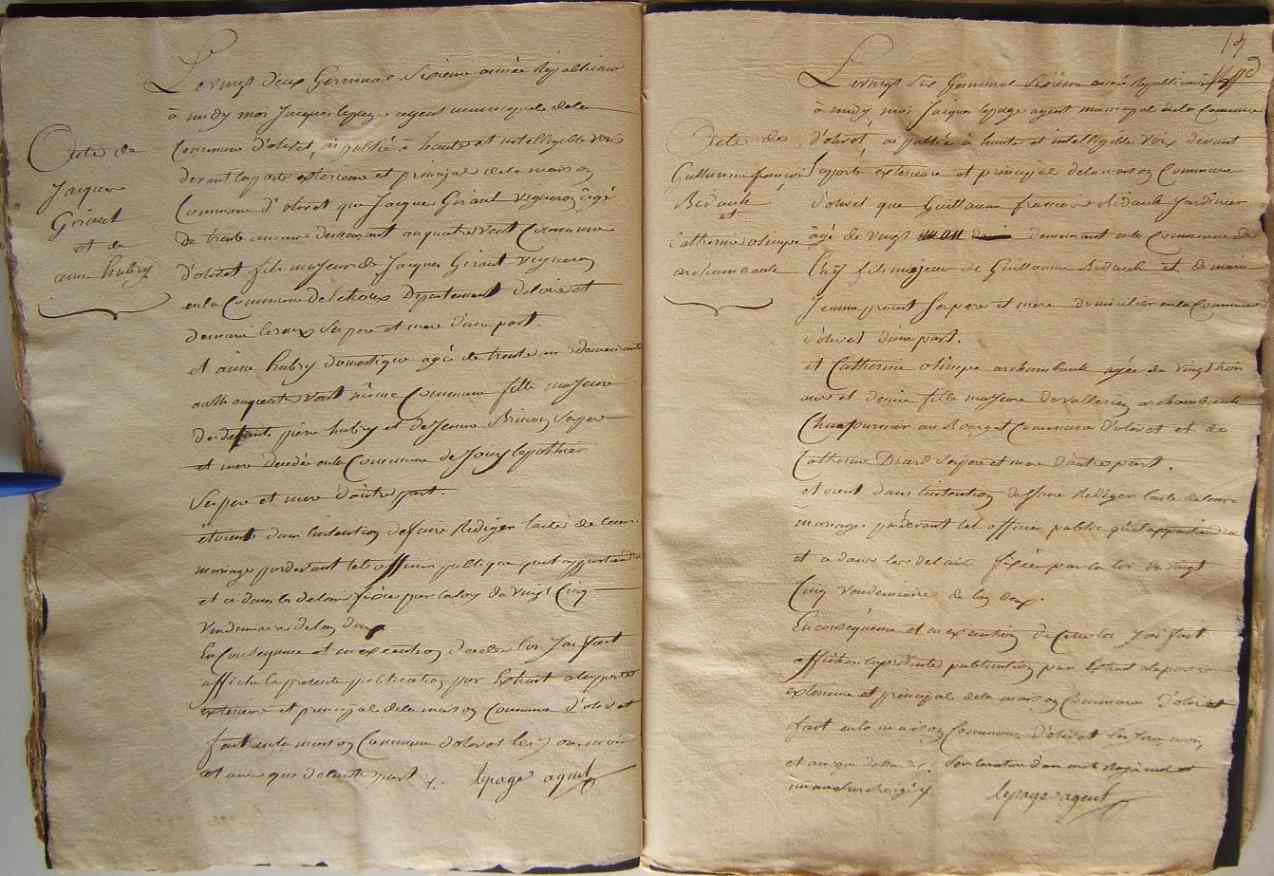 Le vingt deux Germinal Sixieme année Republicaine
à midy moi Jacques lepage agent municipal de la
Commune d'olivet, ai publié à haute et intelligible voix
devant la porte exterieure et principal de la maison
Commune d'olivet que Jacques Giraut vigneron âgé
de trente demeurant au quatre vent Commune
d'olivet fils majeur de Jacques Giraut vigneron
en la Commune de Departement
de marie Ses pere et mere d'une part.
et anne hubry domestique agé de trente un demeurant
aussi au quatre vent même Commune fille majeure
de defunts piere hubry et de Jeanne Ses pere
et mere decedé en la Commune de Jouy le pothier
Ses pere et mere d'autre part.
étoient dans l'intention de faire Rediger l'acte de leur
mariage par devant tel officier public
et ce dans le delai fixée par la loy du vingt Cinq
Vendemiaire de l'an deux
En Consequence et en execution de cette loi J'ai fait
afficher la presente publication par Extrait a la porte
exterieure et principal de la maison Commune d'olivet
fait en la maison Commune d'olivet les jour, mois
et an que de l'autre part. lepage agent
Acte de
Jacques
Giraut
et de
anne hubry
Le vingt Six Germinal Sixieme année Republicaine
à midy moi Jacques lepage agent municipal de la Commune
d'olivet ai publié à haute et intelligible voix devant
la porte exterieure et principal de la maison Commune
d'olivet que Guillaume francois Bidault Jardinier
âgé de vingt demeurant en la Commune de
fils majeur de Guillaume Bidault et de marie
Jeanne Ses pere et mere en la Commune
d'olivet d'une part.
et Catherine olimpe archambault agée de vingt trois
ans et demie fille majeure de vallerien archambault
Chaufournier au Bourg et Commune d'olivet et de
Catherine Ses pere et mere d'autre part.
etoient dans l'intention de faire Rediger l'acte de leur
mariage par devant tel officier public qu'il appartiendra
et ce dans les delais fixée par la loi du vingt
Cinq Vendemiaire de l'an deux.
En consequence et en execution de Cette loi J'ai fait
afficher la presente publication par Extrait a la porte
exterieure et principal de la maison Commune d'olivet
fait en la maison Commune d'olivet les jour, mois,
et an que dessus
lepage agent
Acte de
Guillaume francois
Bidault
et
Catherine olimpe
archambault